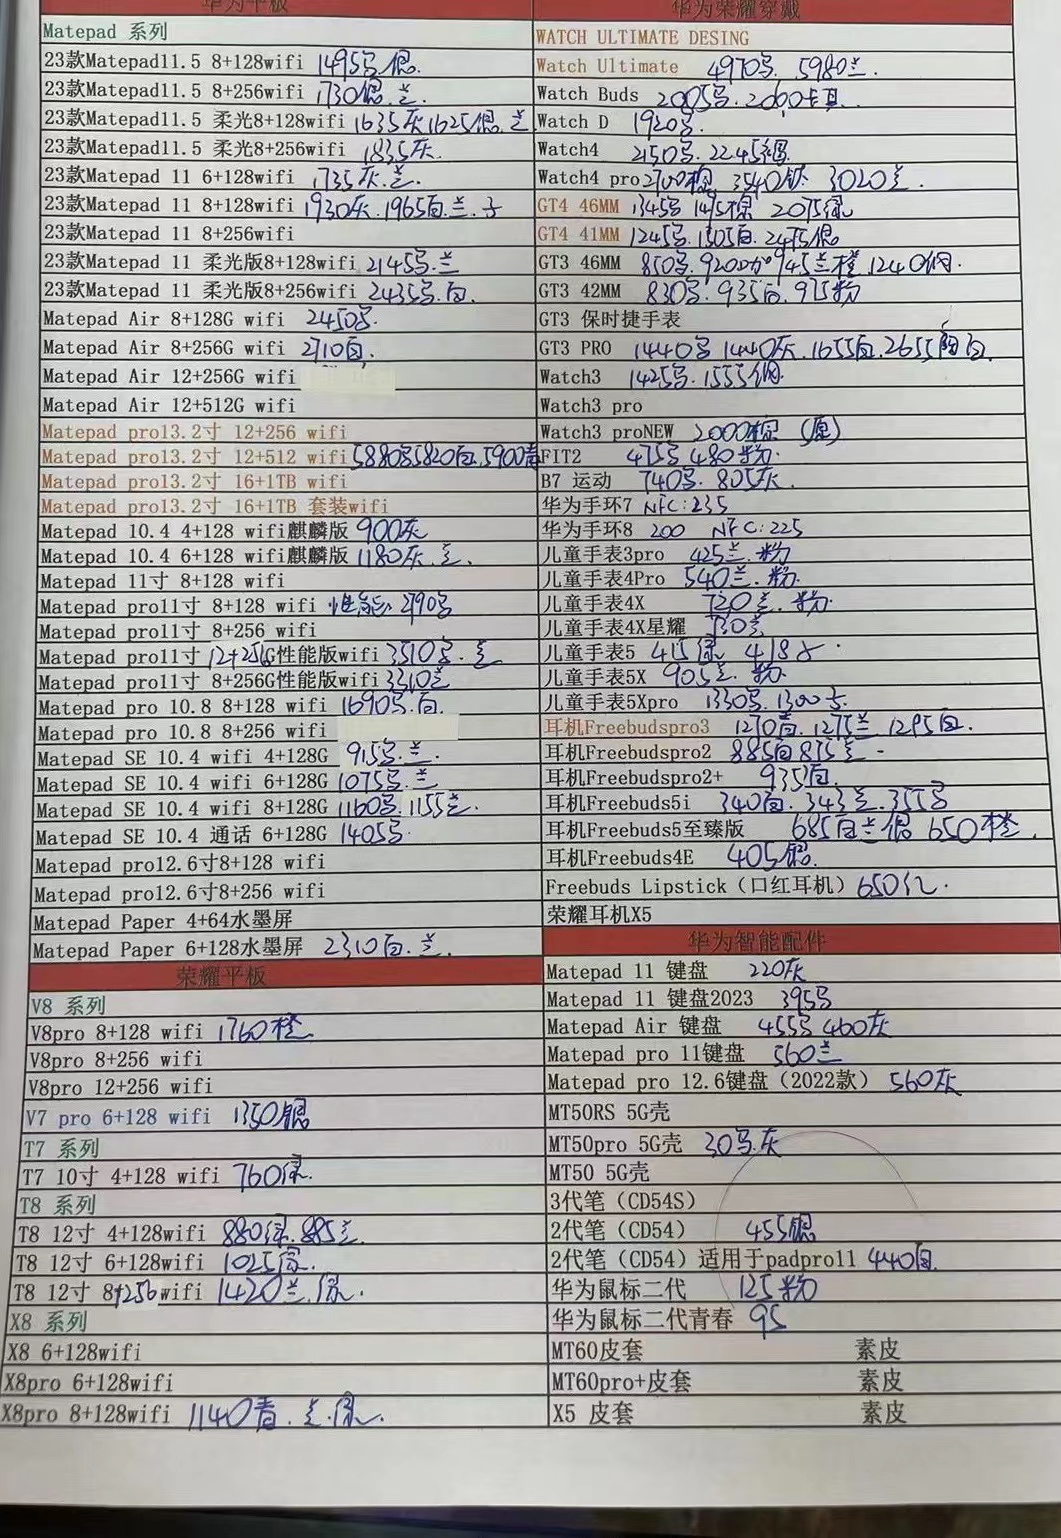 华为平板
Matepad 系列
23款Matepad11.5 8+128wifi 1495号.银.
23款Matepad11.5 8+256wifi 1730银.兰.
23款Matepad11.5 柔光8+128wifi 1635灰1625银.兰
23款Matepad11.5 柔光8+256wifi 1835灰.
23款Matepad 11 6+128wifi 1735灰.兰.
23款Matepad 11 8+128wifi 1930灰.1965白.兰.子
23款Matepad 11 8+256wifi
23款Matepad 11 柔光版8+128wifi 2145号.兰
23款Matepad 11 柔光版8+256wifi 2435号.白.
Matepad Air 8+128G wifi 2450号.
Matepad Air 8+256G wifi 2710白.
Matepad Air 12+256G wifi
Matepad Air 12+512G wifi
Matepad pro13.2寸 12+256 wifi
Matepad pro13.2寸 12+512 wifi 5880号5820白.5900青
Matepad pro13.2寸 16+1TB wifi
Matepad pro13.2寸 16+1TB 套装wifi
Matepad 10.4 4+128 wifi麒麟版 900灰
Matepad 10.4 6+128 wifi麒麟版 1180灰.兰.
Matepad 11寸 8+128 wifi
Matepad pro11寸 8+128 wifi 性能 2790号
Matepad pro11寸 8+256 wifi
Matepad pro11寸 12+256G性能版wifi 3510号.兰
Matepad pro11寸 8+256G性能版wifi 3310兰
Matepad pro 10.8 8+128 wifi 1690号.白.
Matepad pro 10.8 8+256 wifi
Matepad SE 10.4 wifi 4+128G 915号.兰.
Matepad SE 10.4 wifi 6+128G 1075号.兰
Matepad SE 10.4 wifi 8+128G 1160号.1155兰.
Matepad SE 10.4 通话 6+128G 1405号.
Matepad pro12.6寸8+128 wifi
Matepad pro12.6寸8+256 wifi
Matepad Paper 4+64水墨屏
Matepad Paper 6+128水墨屏 2310白.兰.
荣耀平板
V8 系列
V8pro 8+128 wifi 1760橙
V8pro 8+256 wifi
V8pro 12+256 wifi
V7 pro 6+128 wifi 1350银
T7 系列
T7 10寸 4+128 wifi 760绿.
T8 系列
T8 12寸 4+128wifi 880绿.885兰.
T8 12寸 6+128wifi 1025
T8 12寸 8+256wifi 1420兰.绿.
X8 系列
X8 6+128wifi
X8pro 6+128wifi
X8pro 8+128wifi 1140青.兰.绿.
华为荣耀穿戴
WATCH ULTIMATE DESING
Watch Ultimate 4970号.5980兰.
Watch Buds 2005号.2060卡其.
Watch D 1920号.
Watch4 2150号.2245褐
Watch4 pro 2700棕 3540钛 3020兰.
GT4 46MM 1345号 1415棕 2075绿
GT4 41MM 1245号.1505白.2475银
GT3 46MM 850号.920 945兰橙.1240钢.
GT3 42MM 830号.935白.975粉
GT3 保时捷手表
GT3 PRO 1440号 1440灰.1655白.2655陶白.
Watch3 1425号.1555钢.
Watch3 pro
Watch3 proNEW 2000棕 (原)
FIT2 475号 480粉.
B7 运动 740号.805灰.
华为手环7 NFC:235
华为手环8 200 NFC:225
儿童手表3pro 425兰.粉
儿童手表4Pro 540兰.粉.
儿童手表4X 720兰.粉.
儿童手表4X星耀 730兰
儿童手表5 415绿 418
儿童手表5X 905兰.粉.
儿童手表5Xpro 1330号.1300
耳机Freebudspro3 1270青.1275兰 1295白.
耳机Freebudspro2 885白875兰
耳机Freebudspro2+ 935白.
耳机Freebuds5i 340白.343兰.355号
耳机Freebuds5至臻版 685白兰银 650橙.
耳机Freebuds4E 405银.
Freebuds Lipstick（口红耳机）650红.
荣耀耳机X5
华为智能配件
Matepad 11 键盘 220灰
Matepad 11 键盘2023 395号
Matepad Air 键盘 455号 460灰
Matepad pro 11键盘 560兰
Matepad pro 12.6键盘（2022款） 560灰
MT50RS 5G壳
MT50pro 5G壳 30号.灰
MT50 5G壳
3代笔（CD54S）
2代笔（CD54） 455银
2代笔（CD54）适用于padpro11 440白.
华为鼠标二代 125粉
华为鼠标二代青春 95
MT60皮套 素皮
MT60pro+皮套 素皮
X5 皮套 素皮